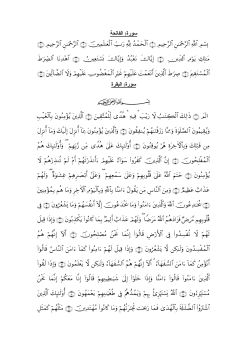 سورة الفاتحة
بِسْمِ ٱللَّهِ ٱلرَّحْمَٰنِ ٱلرَّحِيمِ ۝ ٱلْحَمْدُ لِلَّهِ رَبِّ ٱلْعَٰلَمِينَ ۝ ٱلرَّحْمَٰنِ ٱلرَّحِيمِ ۝
مَٰلِكِ يَوْمِ ٱلدِّينِ ۝ إِيَّاكَ نَعْبُدُ وَإِيَّاكَ نَسْتَعِينُ ۝ ٱهْدِنَا ٱلصِّرَٰطَ
ٱلْمُسْتَقِيمَ ۝ صِرَٰطَ ٱلَّذِينَ أَنْعَمْتَ عَلَيْهِمْ غَيْرِ ٱلْمَغْضُوبِ عَلَيْهِمْ وَلَا ٱلضَّآلِّينَ ۝
سورة البقرة
بِسْمِ ٱللَّهِ ٱلرَّحْمَٰنِ ٱلرَّحِيمِ
الٓمٓ ۝ ذَٰلِكَ ٱلْكِتَٰبُ لَا رَيْبَ فِيهِ هُدًى لِّلْمُتَّقِينَ ۝ ٱلَّذِينَ يُؤْمِنُونَ بِٱلْغَيْبِ
وَيُقِيمُونَ ٱلصَّلَوٰةَ وَمِمَّا رَزَقْنَٰهُمْ يُنفِقُونَ ۝ وَٱلَّذِينَ يُؤْمِنُونَ بِمَآ أُنزِلَ إِلَيْكَ وَمَآ أُنزِلَ
مِن قَبْلِكَ وَبِٱلْءَاخِرَةِ هُمْ يُوقِنُونَ ۝ أُو۟لَٰٓئِكَ عَلَىٰ هُدًى مِّن رَّبِّهِمْ وَأُو۟لَٰٓئِكَ هُمُ
ٱلْمُفْلِحُونَ ۝ إِنَّ ٱلَّذِينَ كَفَرُوا۟ سَوَآءٌ عَلَيْهِمْ ءَأَنذَرْتَهُمْ أَمْ لَمْ تُنذِرْهُمْ لَا
يُؤْمِنُونَ ۝ خَتَمَ ٱللَّهُ عَلَىٰ قُلُوبِهِمْ وَعَلَىٰ سَمْعِهِمْ وَعَلَىٰٓ أَبْصَٰرِهِمْ غِشَٰوَةٌ وَلَهُمْ
عَذَابٌ عَظِيمٌ ۝ وَمِنَ ٱلنَّاسِ مَن يَقُولُ ءَامَنَّا بِٱللَّهِ وَبِٱلْيَوْمِ ٱلْءَاخِرِ وَمَا هُم بِمُؤْمِنِينَ
۝ يُخَٰدِعُونَ ٱللَّهَ وَٱلَّذِينَ ءَامَنُوا۟ وَمَا يَخْدَعُونَ إِلَّآ أَنفُسَهُمْ وَمَا يَشْعُرُونَ ۝ فِى
قُلُوبِهِم مَّرَضٌ فَزَادَهُمُ ٱللَّهُ مَرَضًا وَلَهُمْ عَذَابٌ أَلِيمٌۢ بِمَا كَانُوا۟ يَكْذِبُونَ ۝ وَإِذَا قِيلَ
لَهُمْ لَا تُفْسِدُوا۟ فِى ٱلْأَرْضِ قَالُوٓا۟ إِنَّمَا نَحْنُ مُصْلِحُونَ ۝ أَلَآ إِنَّهُمْ هُمُ
ٱلْمُفْسِدُونَ وَلَٰكِن لَّا يَشْعُرُونَ ۝ وَإِذَا قِيلَ لَهُمْ ءَامِنُوا۟ كَمَآ ءَامَنَ ٱلنَّاسُ قَالُوٓا۟
أَنُؤْمِنُ كَمَآ ءَامَنَ ٱلسُّفَهَآءُ أَلَآ إِنَّهُمْ هُمُ ٱلسُّفَهَآءُ وَلَٰكِن لَّا يَعْلَمُونَ ۝ وَإِذَا لَقُوا۟
ٱلَّذِينَ ءَامَنُوا۟ قَالُوٓا۟ ءَامَنَّا وَإِذَا خَلَوْا۟ إِلَىٰ شَيَٰطِينِهِمْ قَالُوٓا۟ إِنَّا مَعَكُمْ إِنَّمَا نَحْنُ
مُسْتَهْزِءُونَ ۝ ٱللَّهُ يَسْتَهْزِئُ بِهِمْ وَيَمُدُّهُمْ فِى طُغْيَٰنِهِمْ يَعْمَهُونَ ۝ أُو۟لَٰٓئِكَ ٱلَّذِينَ
ٱشْتَرَوُا۟ ٱلضَّلَٰلَةَ بِٱلْهُدَىٰ فَمَا رَبِحَت تِّجَٰرَتُهُمْ وَمَا كَانُوا۟ مُهْتَدِينَ ۝ مَثَلُهُمْ كَمَثَلِ